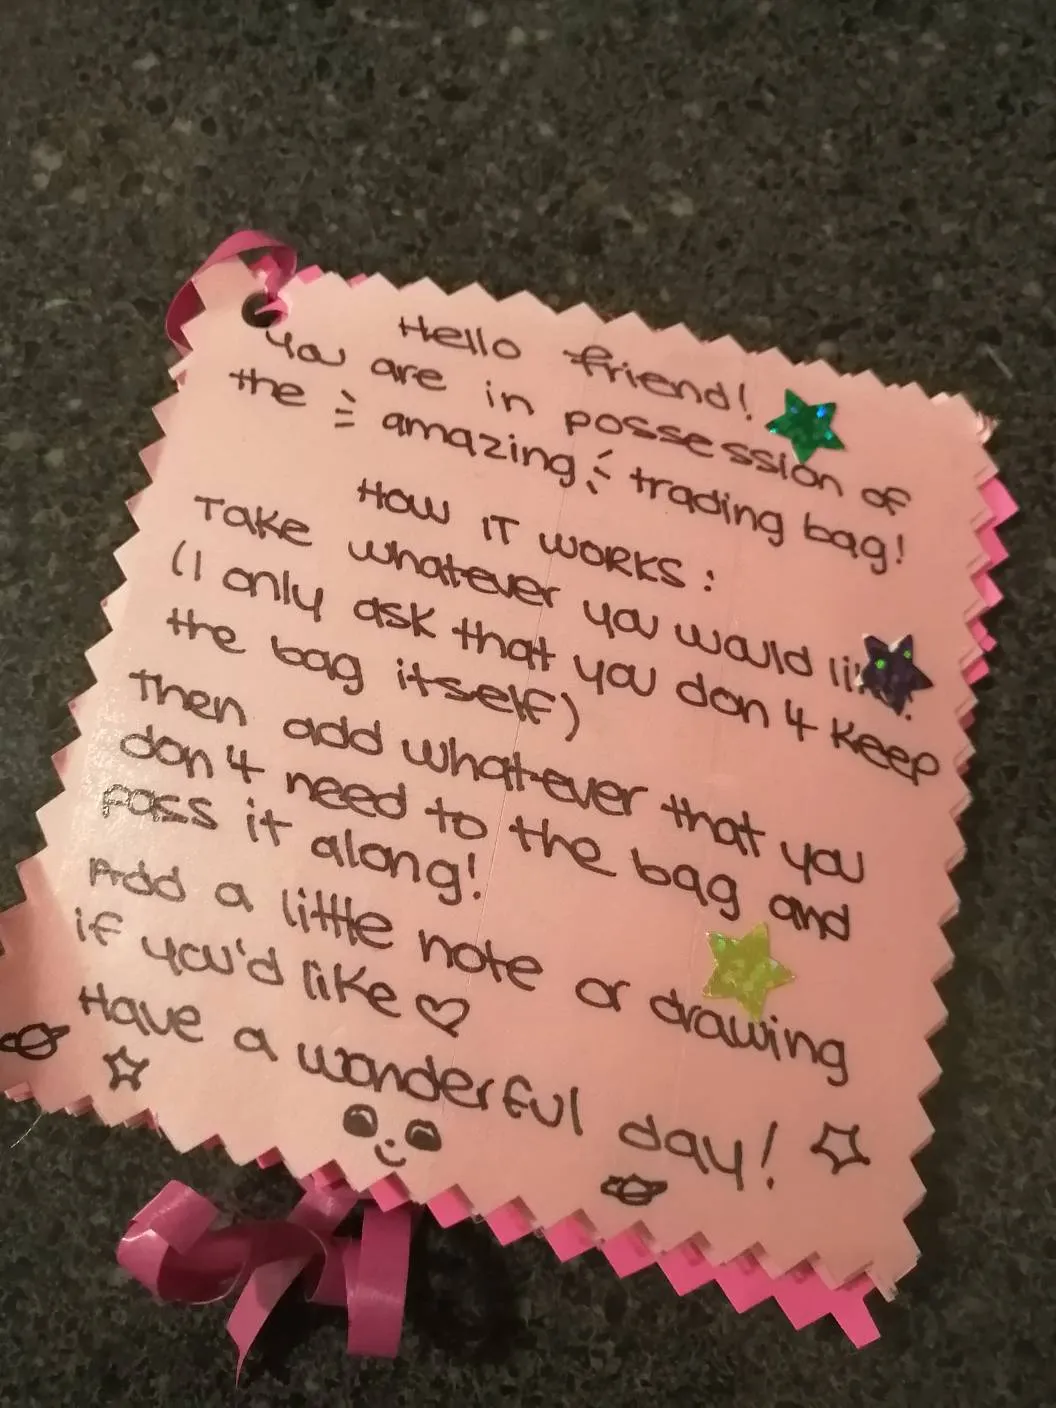 Hello friend!
You are in possession of
the amazing trading bag!
HOW IT WORKS:
Take whatever you would like.
(I only ask that you don't keep
the bag itself)
Then add whatever that you
don't need to the bag and
pass it along!
Add a little note or drawing
if you'd like ♡
Have a wonderful day!